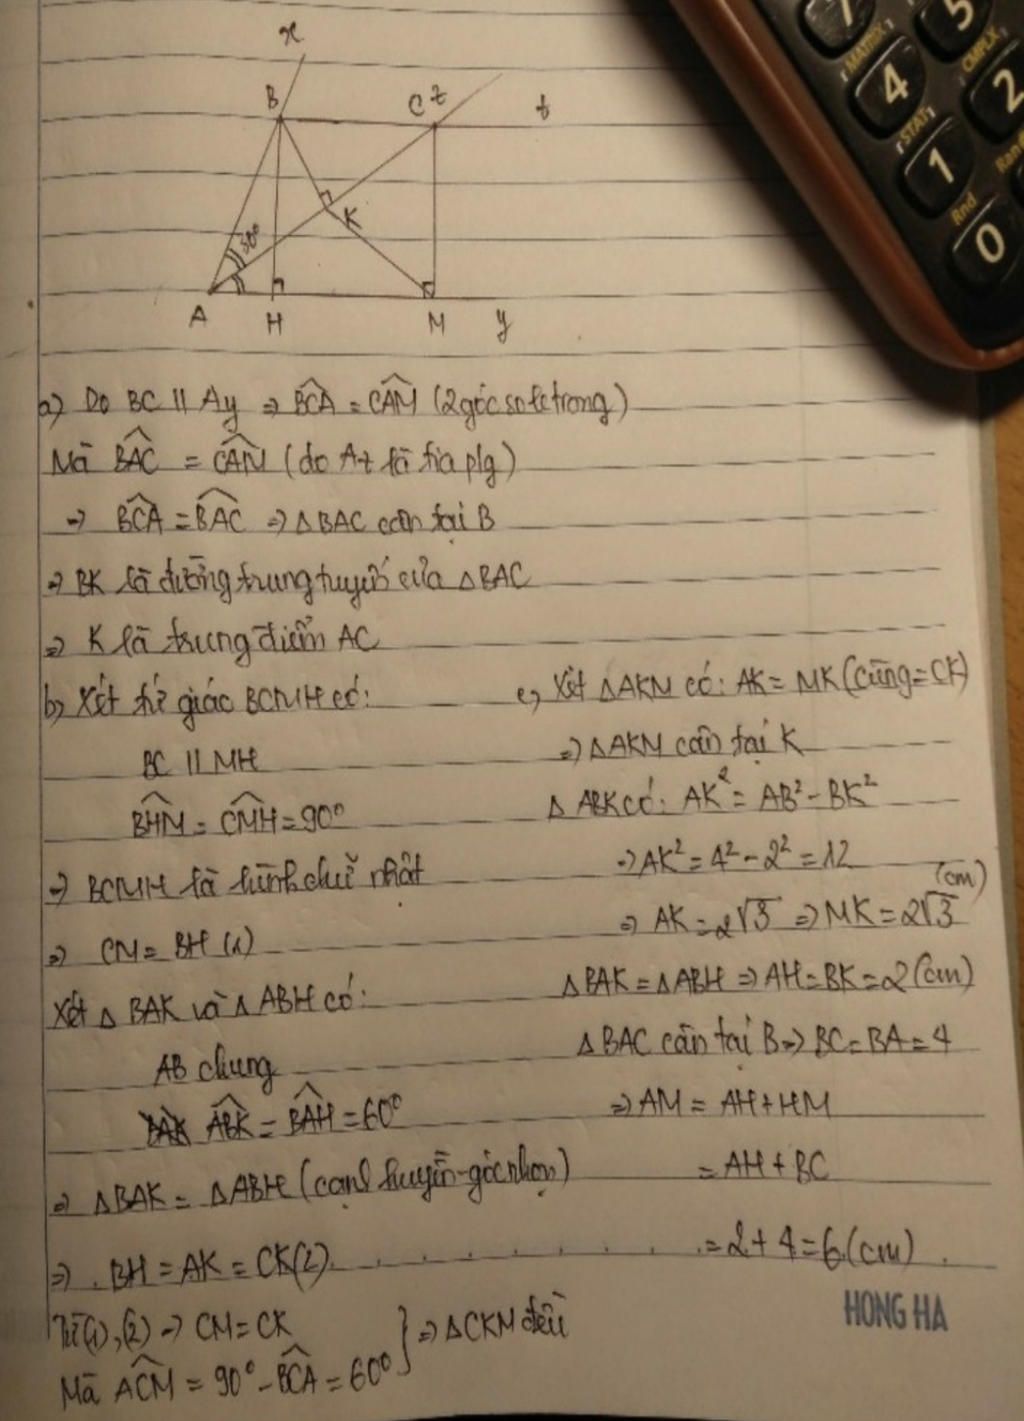 x
B
C z
t
K
30°
A
H
M
y
7
5
MATRIX
CMPLX
4
2
[STAT]
1
Rnd
0
a) Do BC // Ay ⇒ BCA^ = CAM^ (2 góc so le trong)
Mà BAC^ = CAM^ (do Az là tia plg)
⇒ BCA^ = BAC^ ⇒ ΔBAC cân tại B
⇒ BK là đường trung tuyến của ΔBAC
⇒ K là trung điểm AC
b, Xét tứ giác BCMH có:
BC // MH
BHM^ = CMH^ = 90°
⇒ BCMH là hình chữ nhật
⇒ CM = BH (1)
Xét Δ BAK và Δ ABH có:
AB chung
ABK^ = BAH^ = 60°
⇒ ΔBAK = ΔABH (cạnh huyền-góc nhọn)
⇒ BH = AK = CK(2)
Từ (1), (2) ⇒ CM = CK
Mà ACM^ = 90° - BCA^ = 60°
} ⇒ ΔCKM đều
c, Xét ΔAKM có: AK = MK (cùng = CK)
⇒ ΔAKM cân tại K
Δ ABK có: AK² = AB² - BK²
⇒ AK² = 4² - 2² = 12
⇒ AK = 2√3 ⇒ MK = 2√3 (cm)
ΔBAK = ΔABH ⇒ AH = BK = 2 (cm)
ΔBAC cân tại B ⇒ BC = BA = 4
⇒ AM = AH + HM
= AH + BC
= 2 + 4 = 6 (cm)
HONG HA